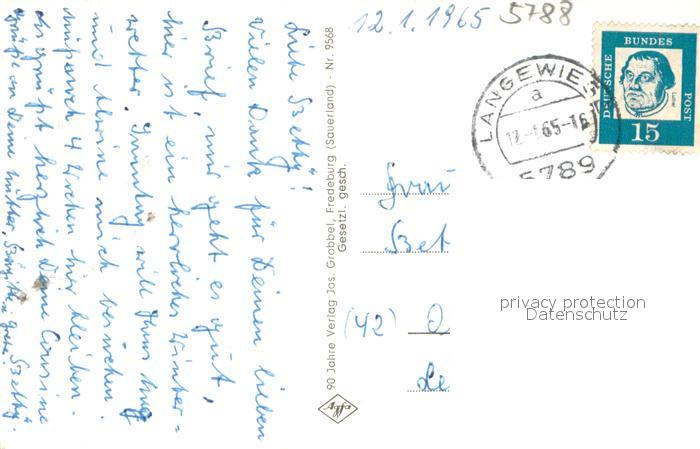 12.1.1965 5788
Liebe Betty!
Vielen Dank für Deinen lieben
Brief, mir geht es gut,
hier ist ein herrliches Winter=
wetter. Sonntag will
und mich besuchen.
4 Wochen hier bleiben.
Es grüßt herzlich Deine Cousine
Grüße an Deine Mutter, Betty.
90 Jahre Verlag Jos. Grobbel, Fredeburg (Sauerland) - Nr. 9568
Gesetzl. gesch.
Agfa
LANGEWIES
a
12.-1.65-16
5789
DEUTSCHE
BUNDES
POST
Luther
15
Frau
Bet
(42) O
Le
privacy protection
Datenschutz